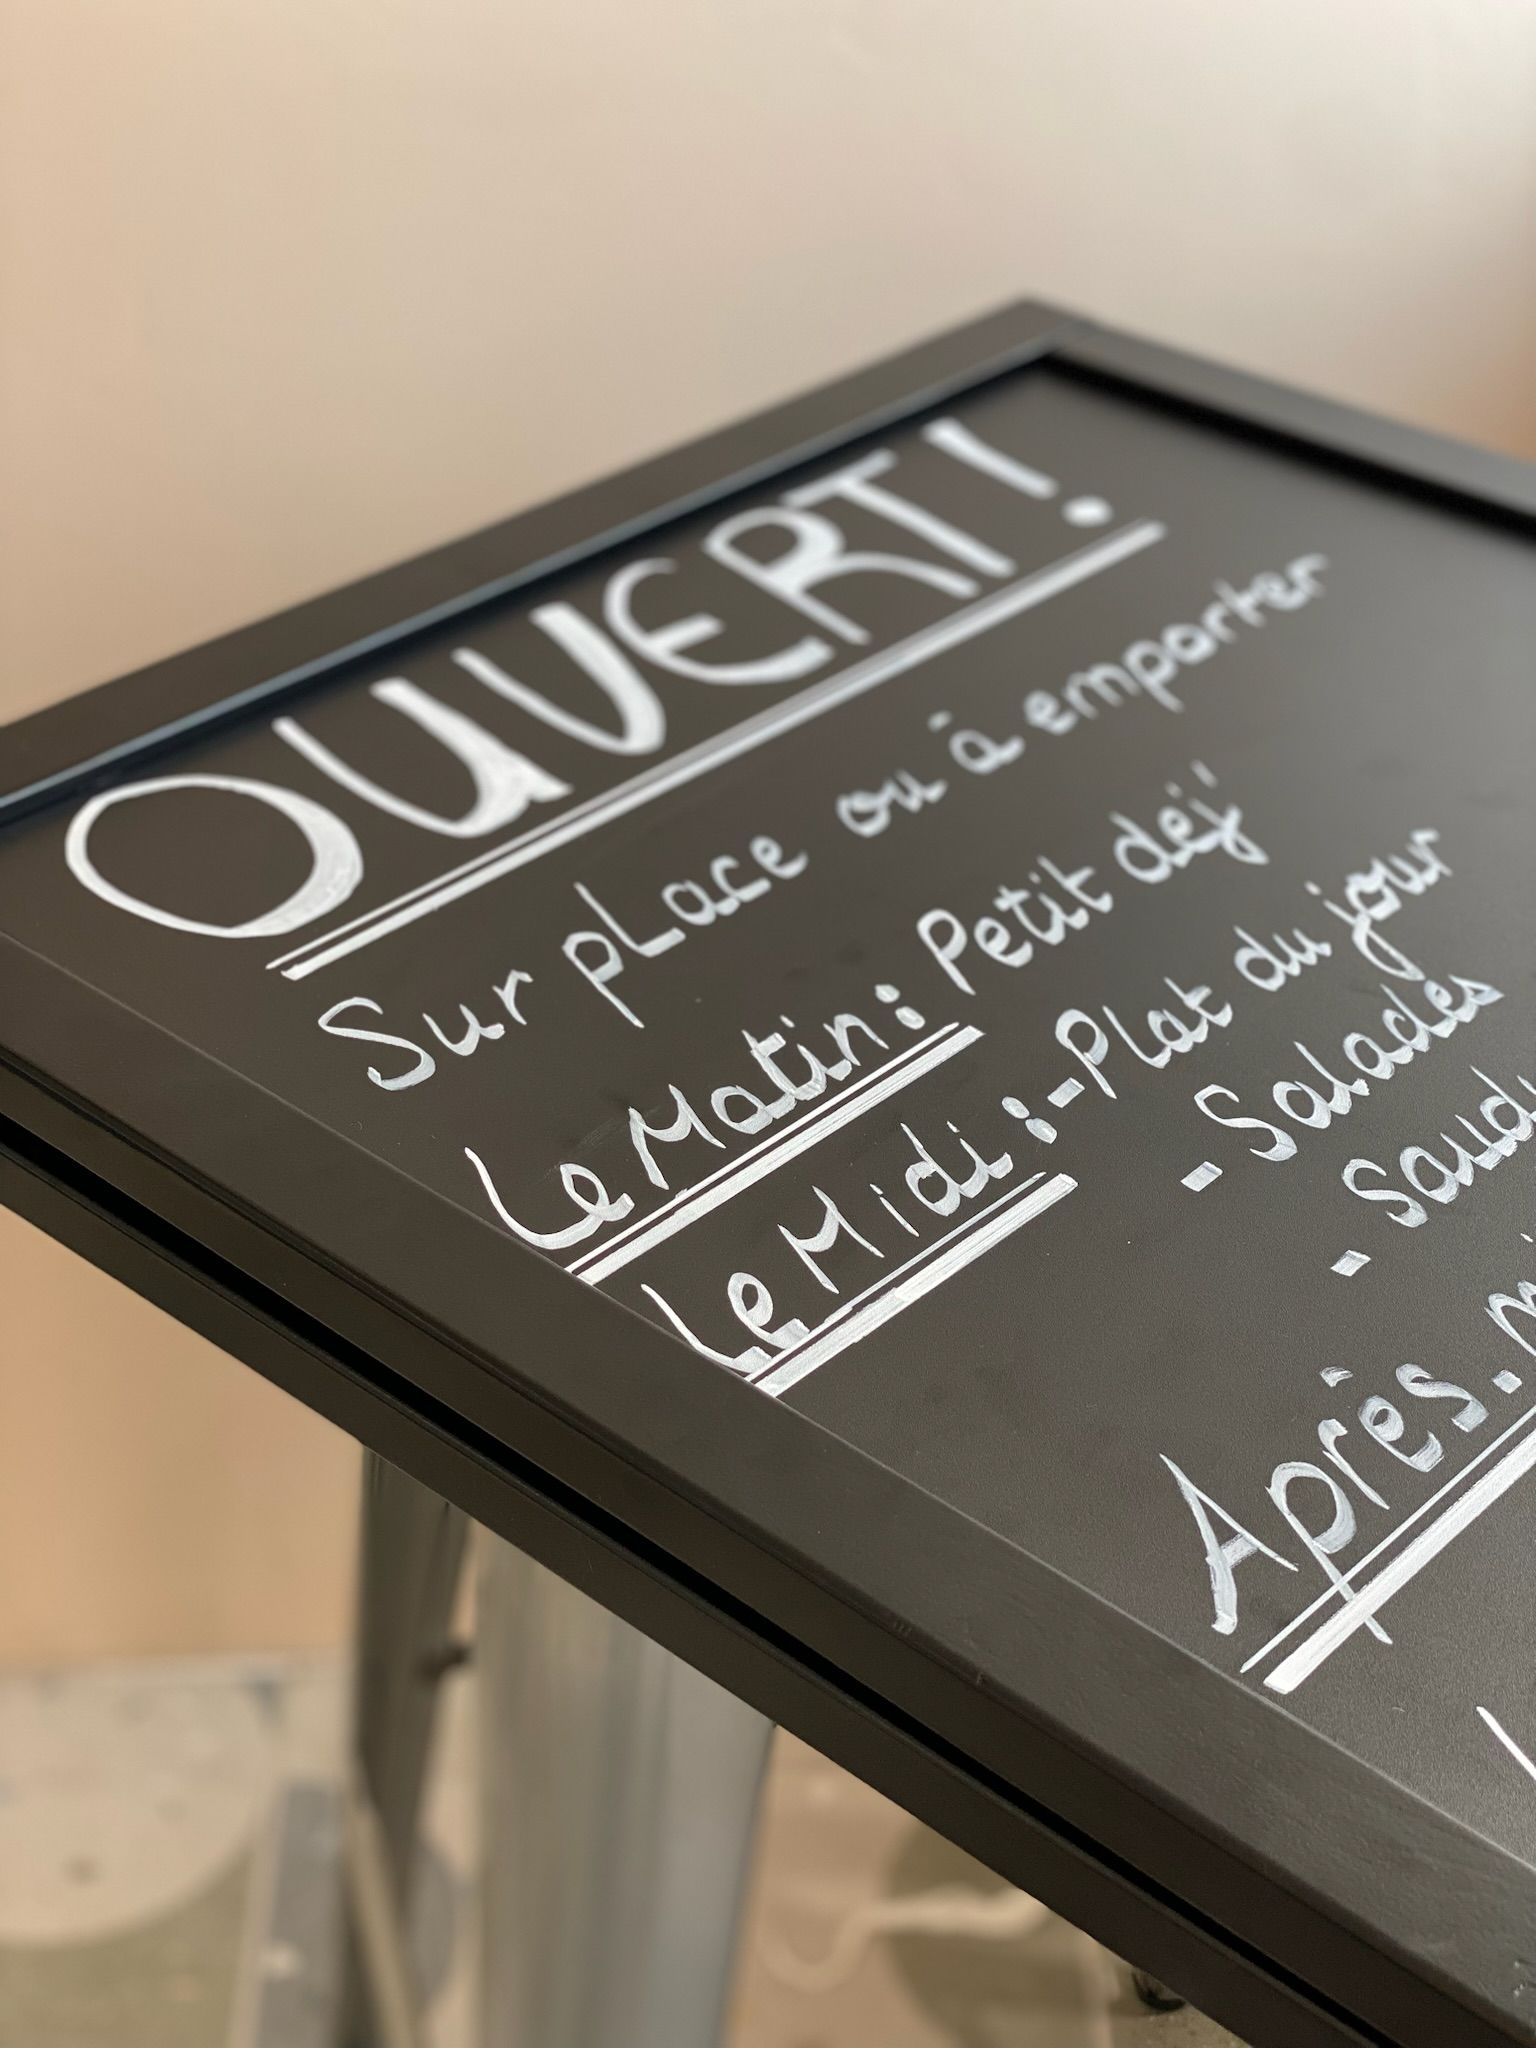 OUVERT !
Sur place ou à emporter
Le Matin : Petit dej'
Le Midi : - Plat du jour
- Salades